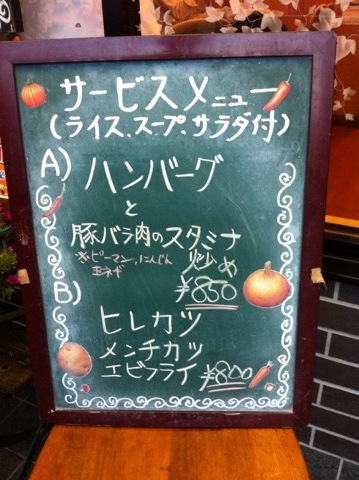 サービスメニュー
(ライス、スープ、サラダ付)
A)
ハンバーグ
と
豚バラ肉のスタミナ
炒め
※ピーマン、にんじん
玉ネギ
¥850
B)
ヒレカツ
メンチカツ
エビフライ ¥800